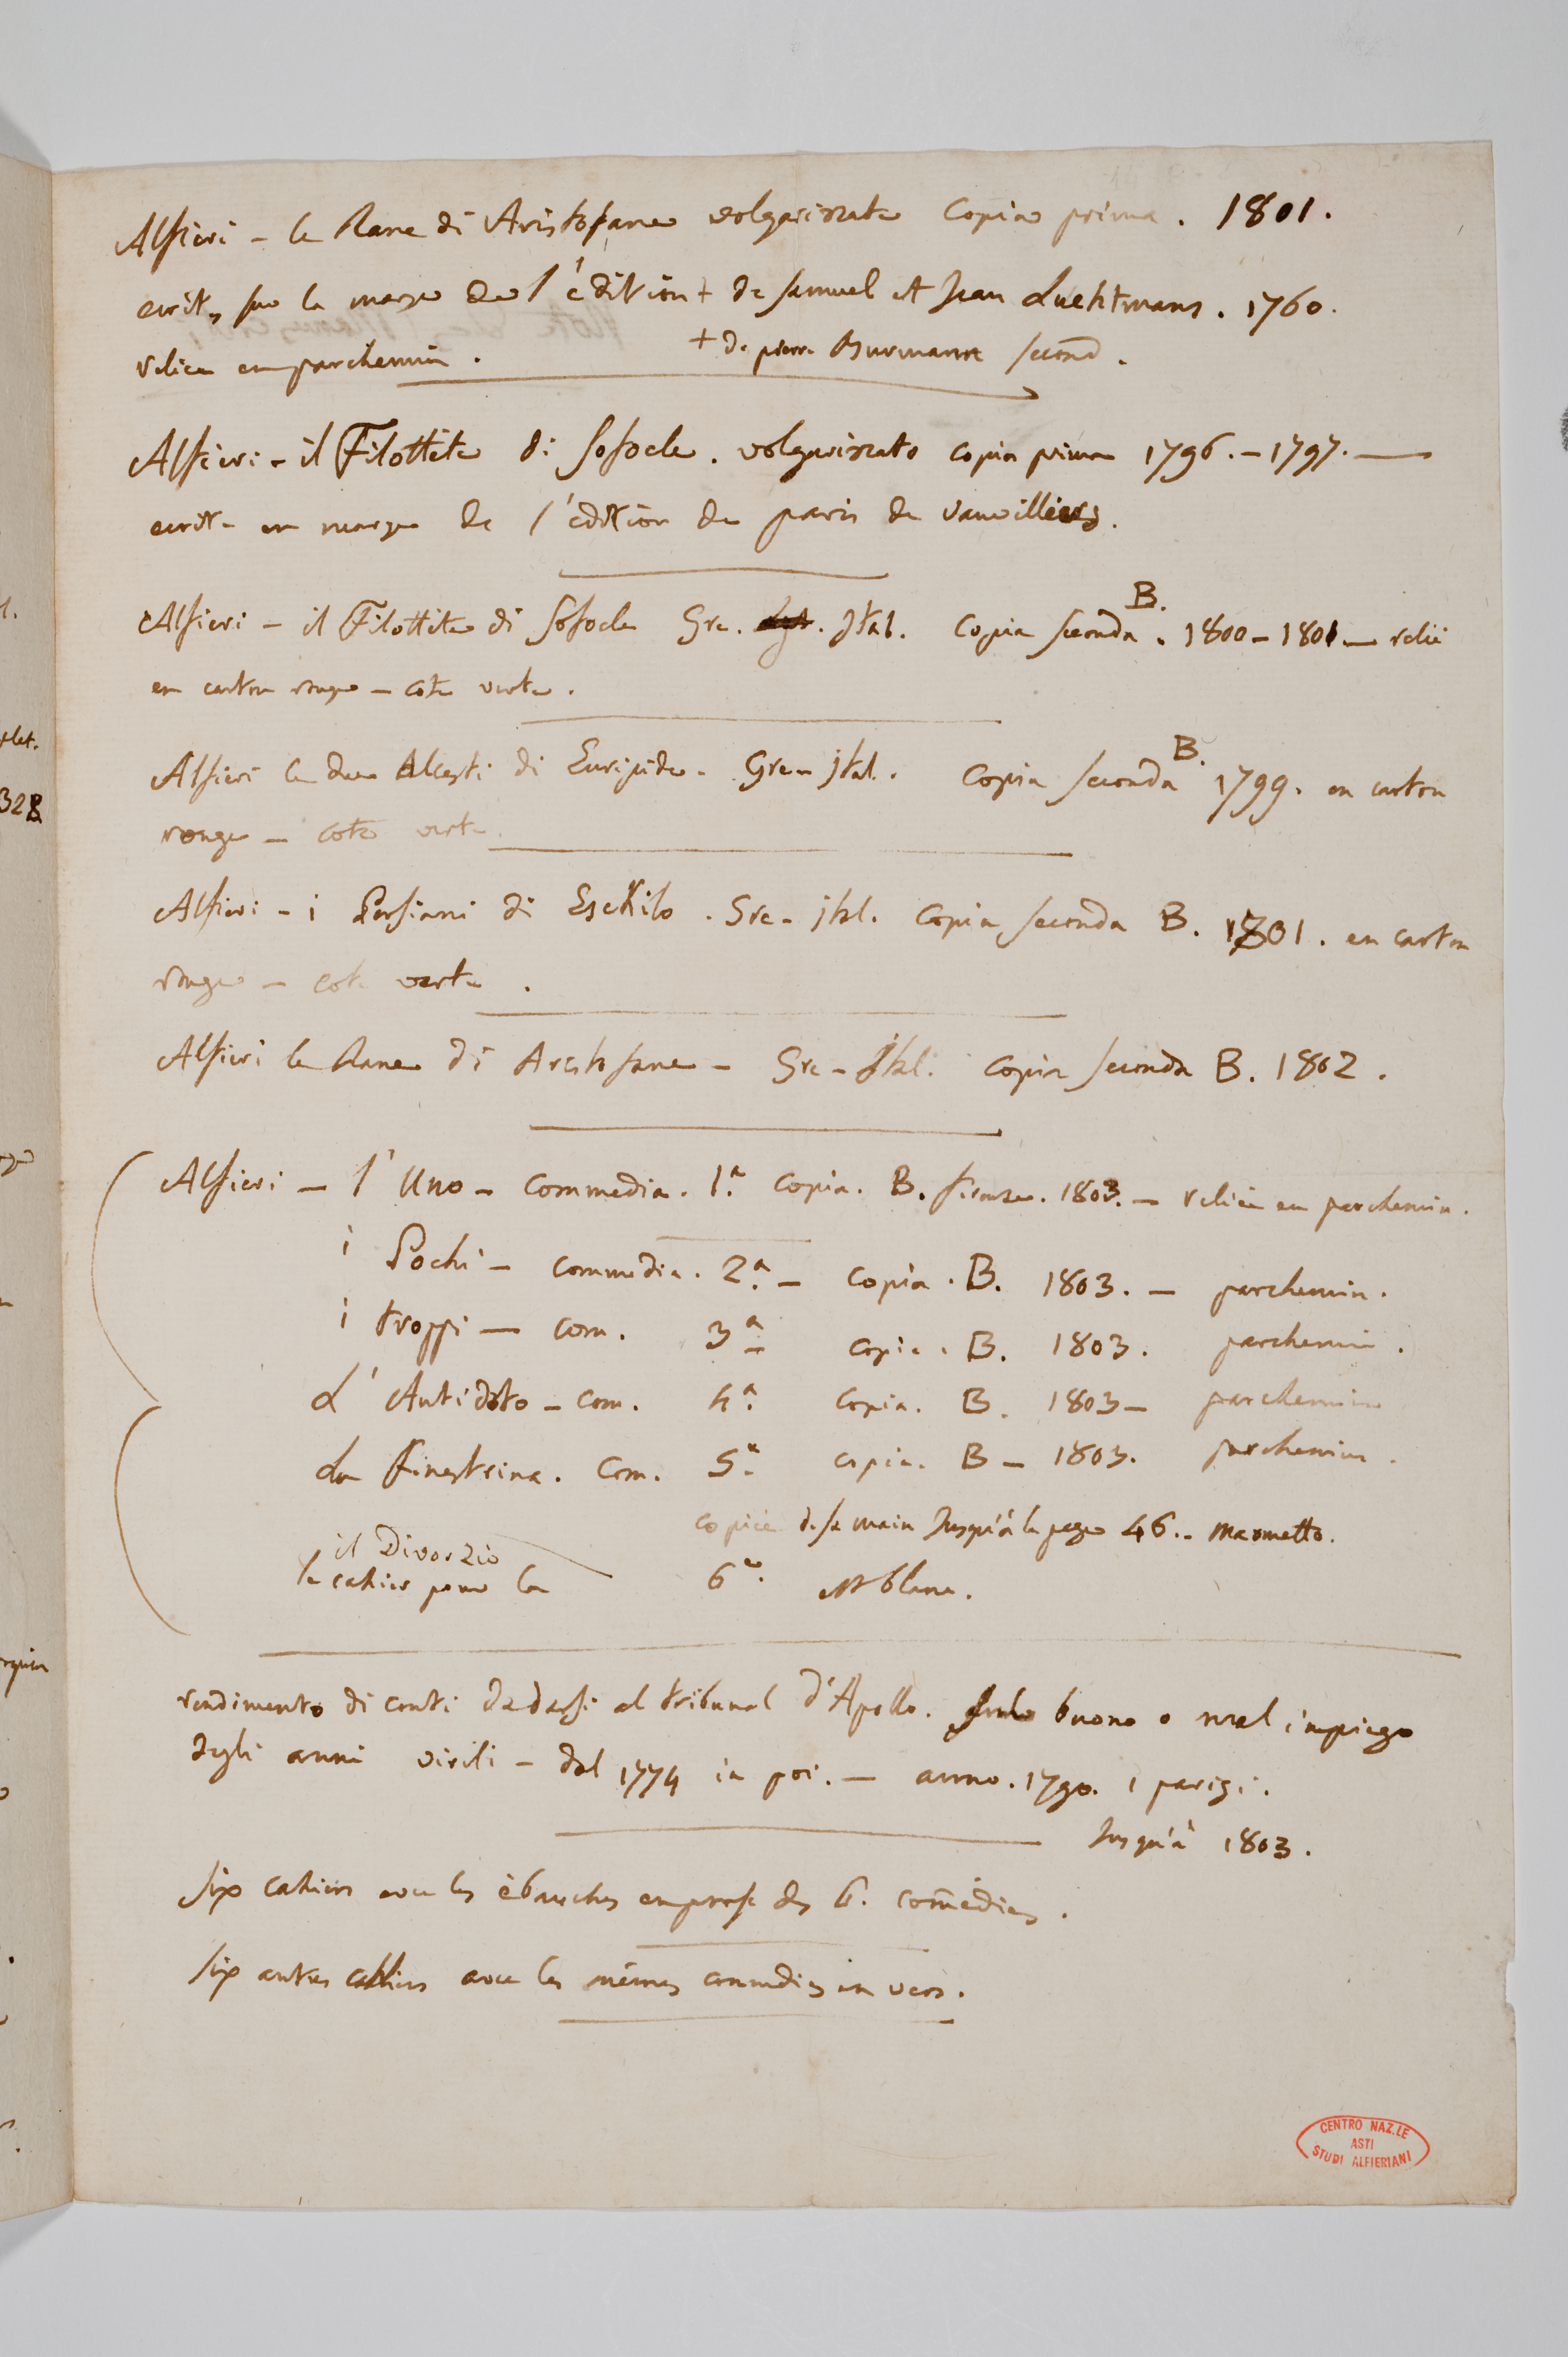 Alfieri - le Rane di Aristofane volgarizzate Copia prima. 1801.
ecrites sur la marge de l'édition + de Samuel et Jean Luchtmans. 1760.
reliée en parchemin. + de pierre Burmann second.
Alfieri - il Filottete di Sofocle. volgarizzato copia prima 1796. - 1797. —
ecrite en marge de l'édition de paris de Vauvilliers.
Alfieri - il Filottete di Sofocle Gre. Ital. Copia seconda B. 1800 - 1801 — relié
en carton rouge - cote verte.
Alfieri le due Alcesti di Euripide - Gre - jtal. Copia seconda B. 1799. en carton
rouge - cote verte.
Alfieri - i Persiani di Eschilo. Gre - jtal. Copia seconda B. 1801. en carton
rouge - cote verte.
Alfieri le Rane di Aristofane - Gre - Jtal. Copia seconda B. 1802.
Alfieri — l'Uno - Commedia. 1.ª Copia. B. firenze. 1803. — reliée en parchemin.
i Pochi - Commedia. 2.ª - Copia. B. 1803. - parchemin.
i troppi — Com. 3.ª copia. B. 1803. parchemin.
L'Antidoto - Com. 4.ª Copia. B. 1803 - parchemin
La Finestrina. Com. 5.ª copia. B - 1803. parchemin.
copiée de sa main Jusqu'à la page 46. - Maometto.
il Divorzio
le cahier pour la 6.e est blanc.
rendimento di conti da darsi al tribunal d'Apollo. sul buono o mal impiego
degli anni virili - dal 1774 in poi. — anno. 1790. parigi.
Jusqu'à 1803.
six cahiers avec les ébauches en prose des 6. comédies.
six autres cahiers avec les mêmes comedies en vers.
CENTRO NAZ.LE
ASTI
STUDI ALFIERIANI